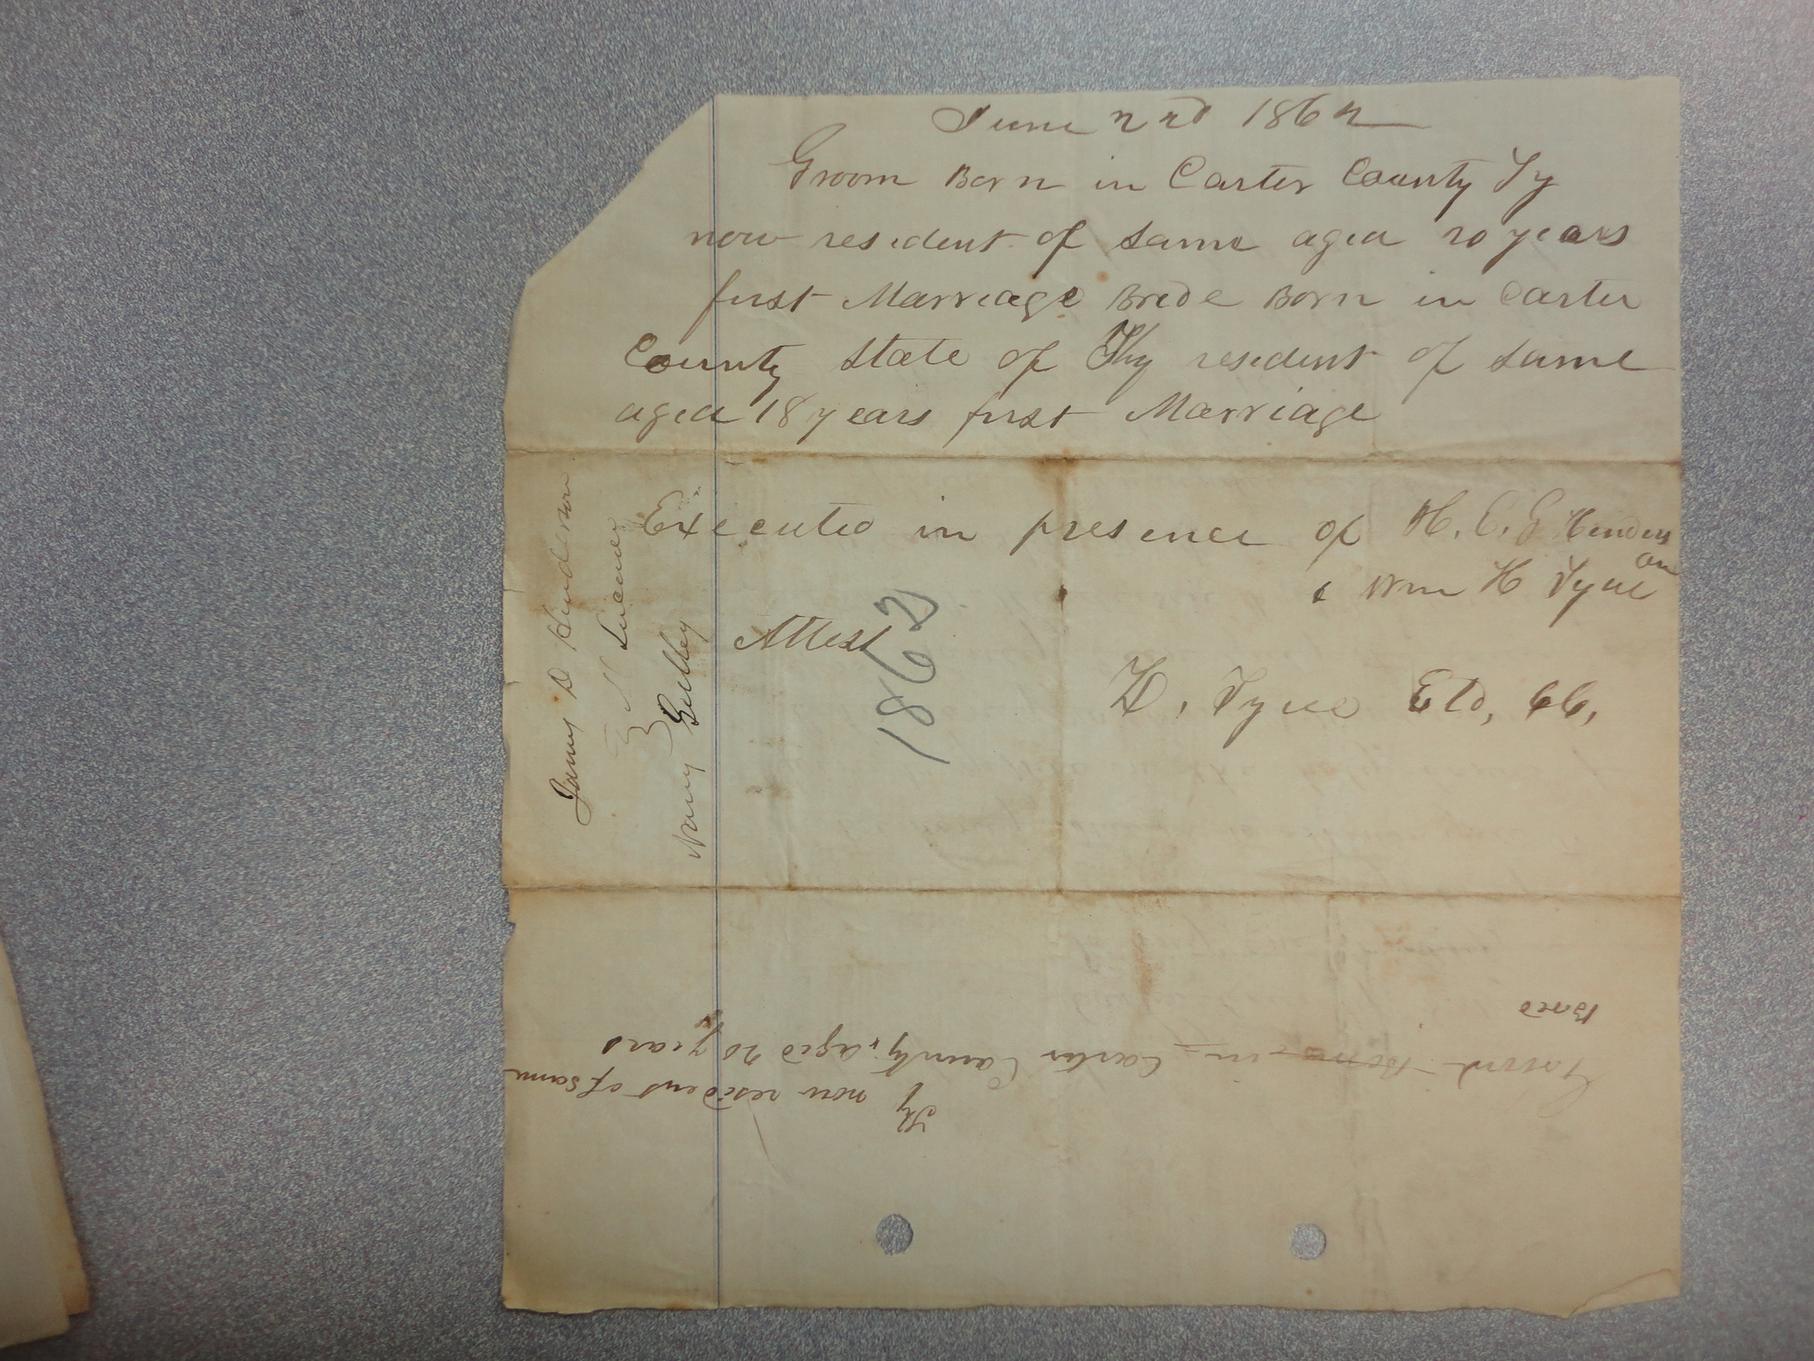 June 2nd 1862
Groom Born in Carter County Ky
now resident of Same aged 20 years
first Marriage Bride Born in Carter
County State of Ky resident of Same
aged 18 years first Marriage
Executed in presence of H. C. G Henders
on
& Wm H Tyree
Attest
Z. Tyree Eld, CC,
1862
James D Henderson
Nancy Gilley
Born in Carter County, aged 20 years
Ky now resident of same